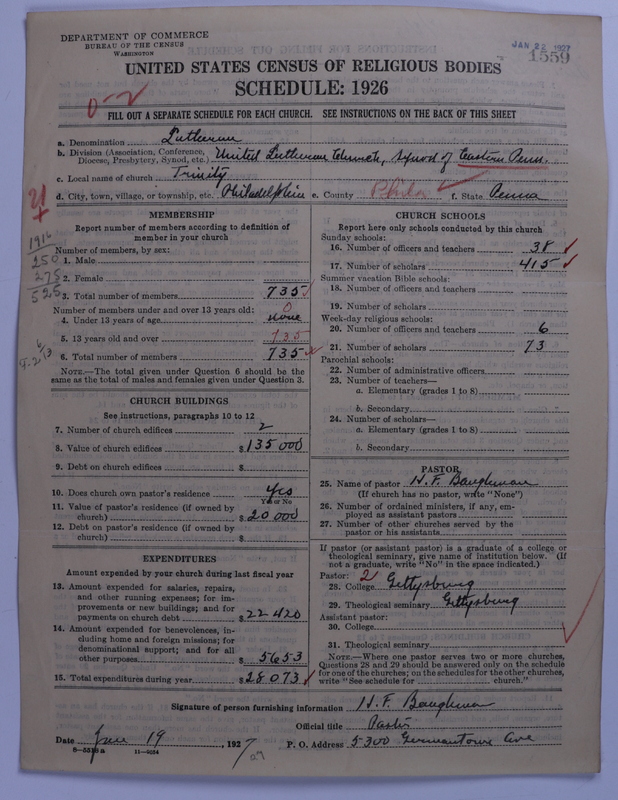 DEPARTMENT OF COMMERCE
BUREAU OF THE CENSUS
WASHINGTON
JAN 22 1927
1559
UNITED STATES CENSUS OF RELIGIOUS BODIES
SCHEDULE: 1926
0-2
FILL OUT A SEPARATE SCHEDULE FOR EACH CHURCH. SEE INSTRUCTIONS ON THE BACK OF THIS SHEET
a. Denomination Lutheran
b. Division (Association, Conference, Diocese, Presbytery, Synod, etc.) United Lutheran Church, Synod of Eastern Penn.
c. Local name of church Trinity
d. City, town, village, or township, etc. Philadelphia e. County Phila f. State Penna
MEMBERSHIP
Report number of members according to definition of member in your church
1916
250
275
525
Number of members, by sex:
1. Male
2. Female
3. Total number of members 735
Number of members under and over 13 years old:
4. Under 13 years of age none 0
5. 13 years old and over 735
6. Total number of members 735
NOTE.—The total given under Question 6 should be the same as the total of males and females given under Question 3.
CHURCH BUILDINGS
See instructions, paragraphs 10 to 12
7. Number of church edifices 2
8. Value of church edifices $135000
9. Debt on church edifices $
10. Does church own pastor's residence Yes
Yes or No
11. Value of pastor's residence (if owned by church) $20000
12. Debt on pastor's residence (if owned by church) $
EXPENDITURES
Amount expended by your church during last fiscal year
13. Amount expended for salaries, repairs, and other running expenses; for improvements or new buildings; and for payments on church debt $22420
14. Amount expended for benevolences, including home and foreign missions; for denominational support; and for all other purposes. $5653
15. Total expenditures during year $28073
CHURCH SCHOOLS
Report here only schools conducted by this church
Sunday schools:
16. Number of officers and teachers 38
17. Number of scholars 415
Summer vacation Bible schools:
18. Number of officers and teachers
19. Number of scholars
Week-day religious schools:
20. Number of officers and teachers 6
21. Number of scholars 73
Parochial schools:
22. Number of administrative officers
23. Number of teachers—
a. Elementary (grades 1 to 8)
b. Secondary
24. Number of scholars—
a. Elementary (grades 1 to 8)
b. Secondary
PASTOR
25. Name of pastor H. F. Baughman
(If church has no pastor, write "None")
26. Number of ordained ministers, if any, employed as assistant pastors
27. Number of other churches served by the pastor or his assistants
If pastor (or assistant pastor) is a graduate of a college or theological seminary, give name of institution below. (If not a graduate, write "No" in the space indicated.)
Pastor: 2
28. College Gettysburg
29. Theological seminary Gettysburg
Assistant pastor:
30. College
31. Theological seminary
NOTE.—Where one pastor serves two or more churches, Questions 28 and 29 should be answered only on the schedule for one of the churches; on the schedules for the other churches, write "See schedule for church."
Signature of person furnishing information H. F. Baughman
Official title Pastor
Date 19, 1927 P. O. Address 5300 Germantown Ave
8-5518 a 11-9024